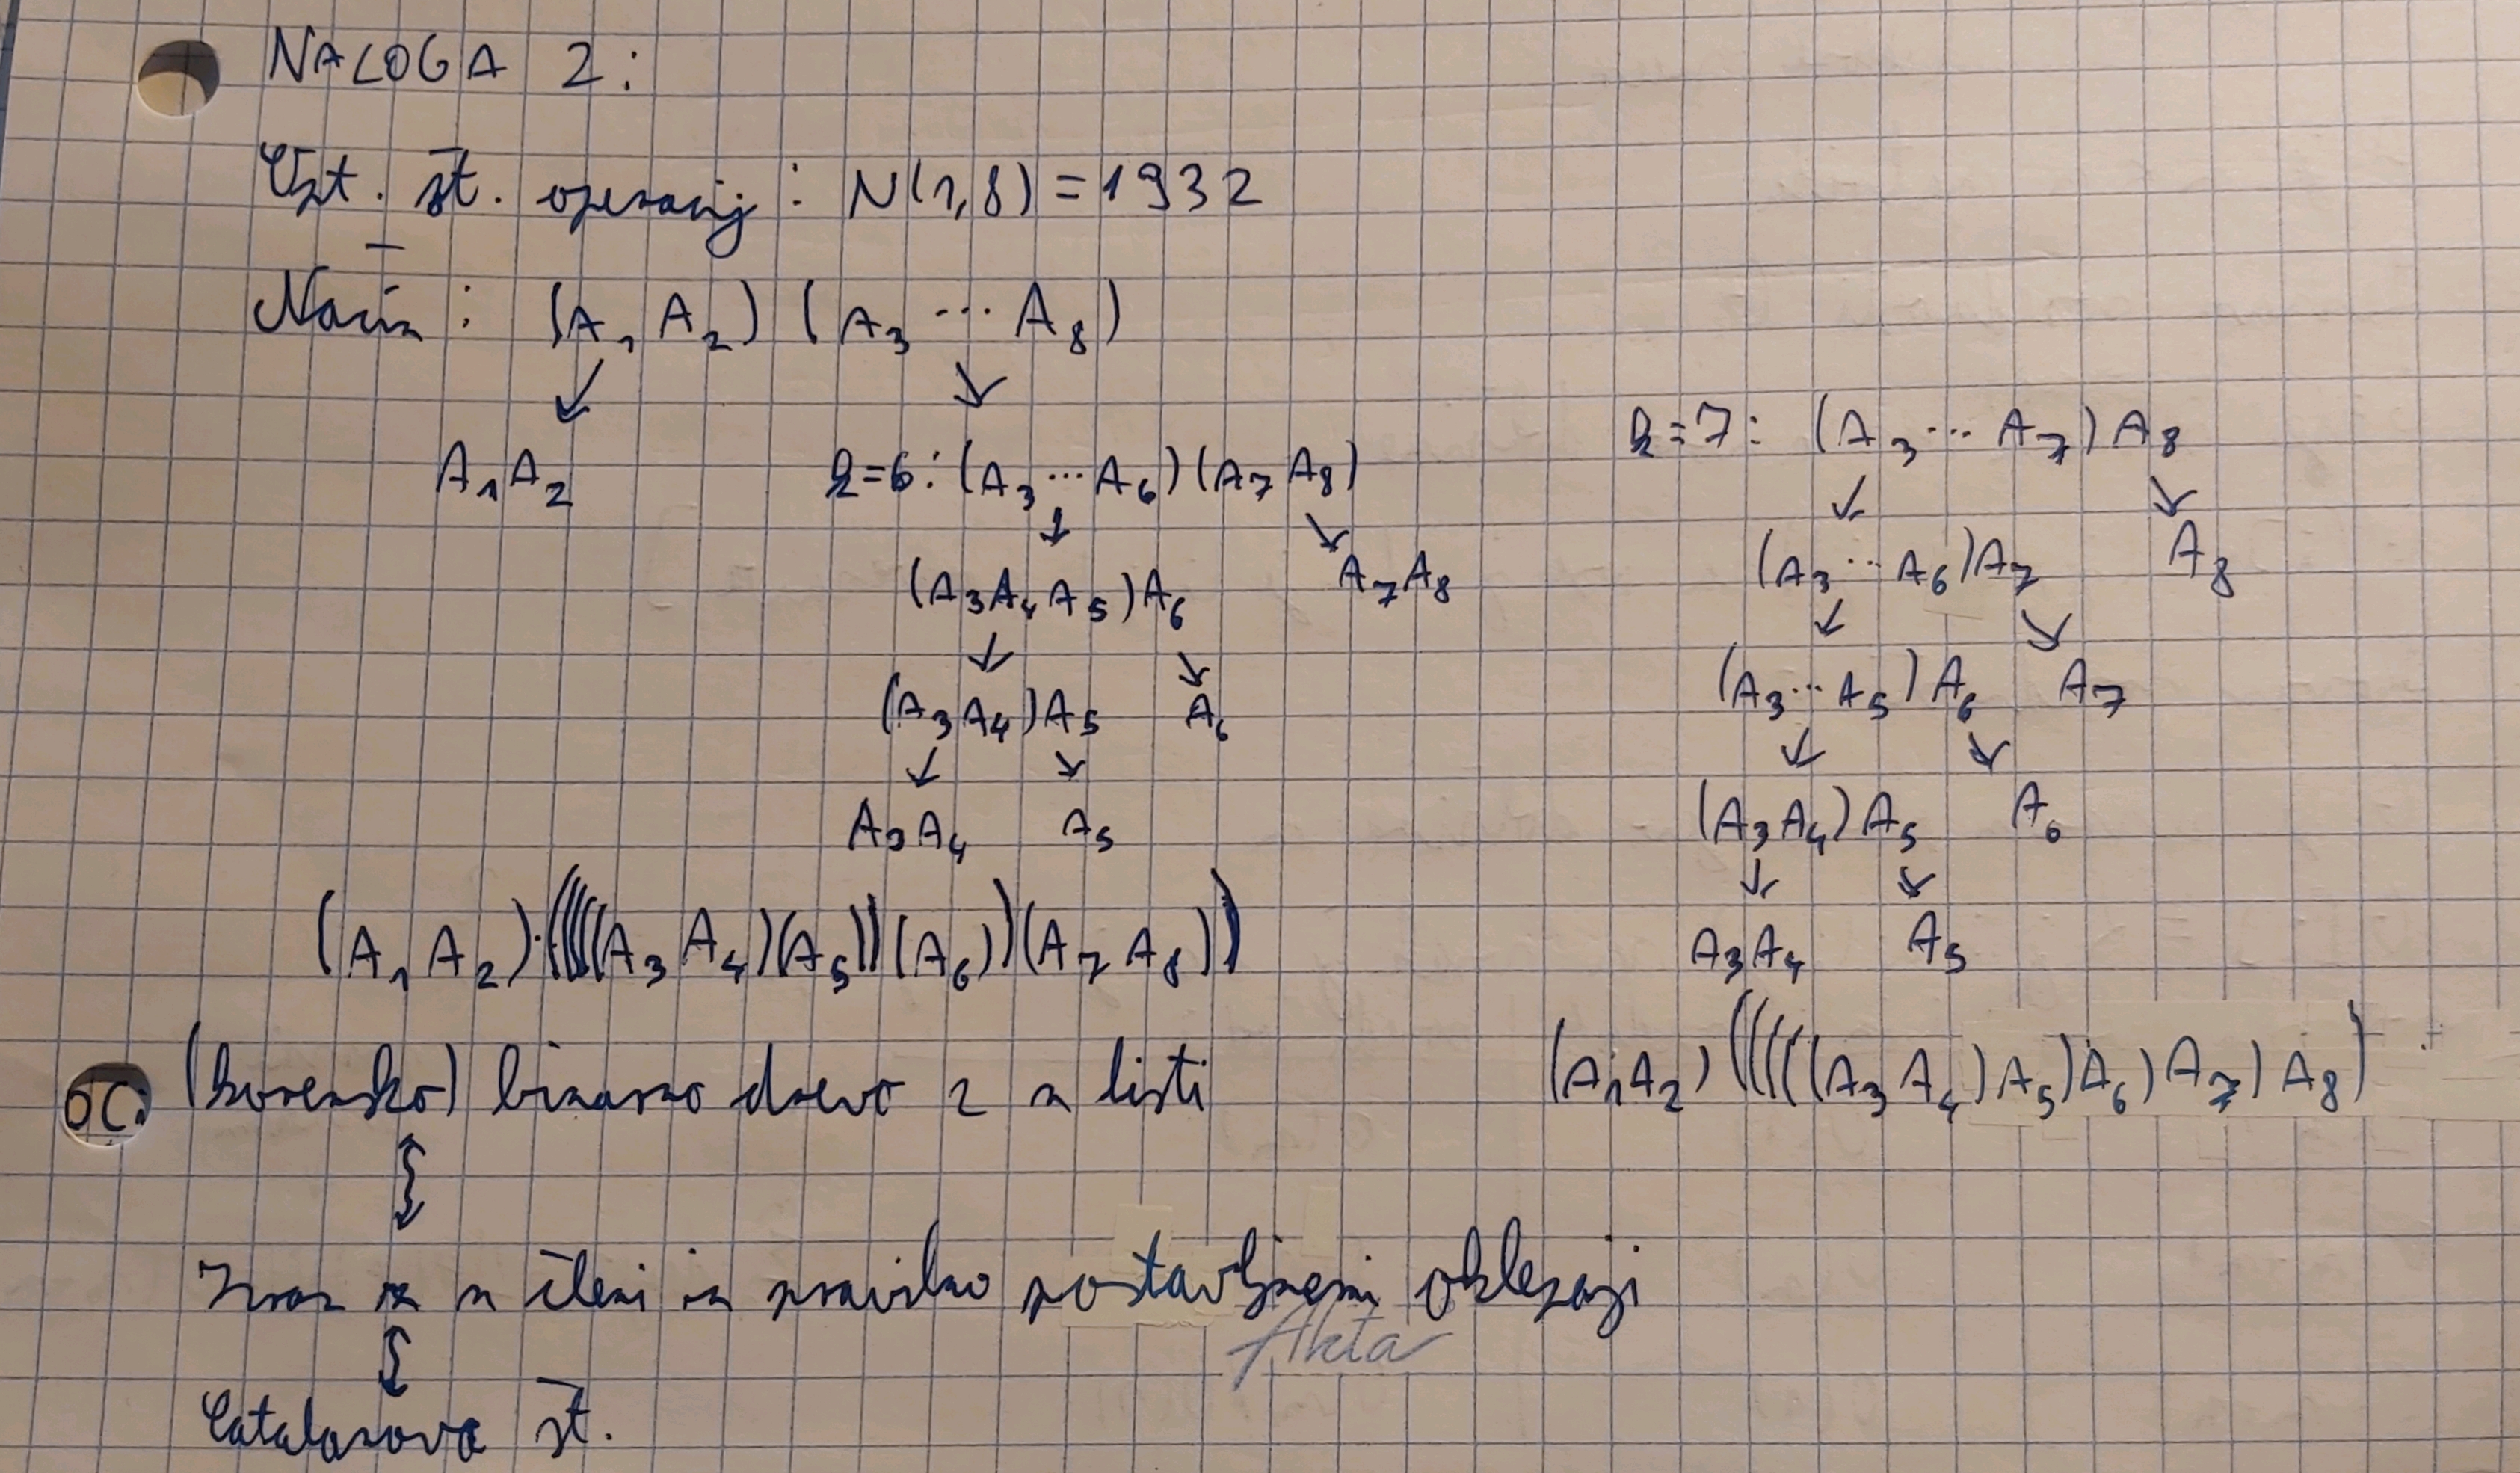 NALOGA 2:
Opt. št. operacij : N(1,8) = 1932
Način : (A₁ A₂) (A₃ ⋯ A₈)
↙ ↘
A₁A₂
k=6: (A₃ ⋯ A₆)(A₇ A₈)
↓ ↘
(A₃A₄A₅)A₆ A₇A₈
↓ ↘
(A₃A₄)A₅ A₆
↙ ↘
A₃A₄ A₅
(A₁ A₂)·((((A₃ A₄)(A₅))(A₆))(A₇ A₈))
k=7: (A₃ ⋯ A₇)A₈
↙ ↘
(A₃ ⋯ A₆)A₇ A₈
↙ ↘
(A₃ ⋯ A₅)A₆ A₇
↙ ↘
(A₃A₄)A₅ A₆
↓ ↘
A₃A₄ A₅
(A₁A₂)(((((A₃ A₄)A₅)A₆)A₇)A₈)
(korensko) binarno drevo z n listi
↕
Izraz z n členi in pravilno postavljenimi oklepaji
↕
Catalanova št.
Akta